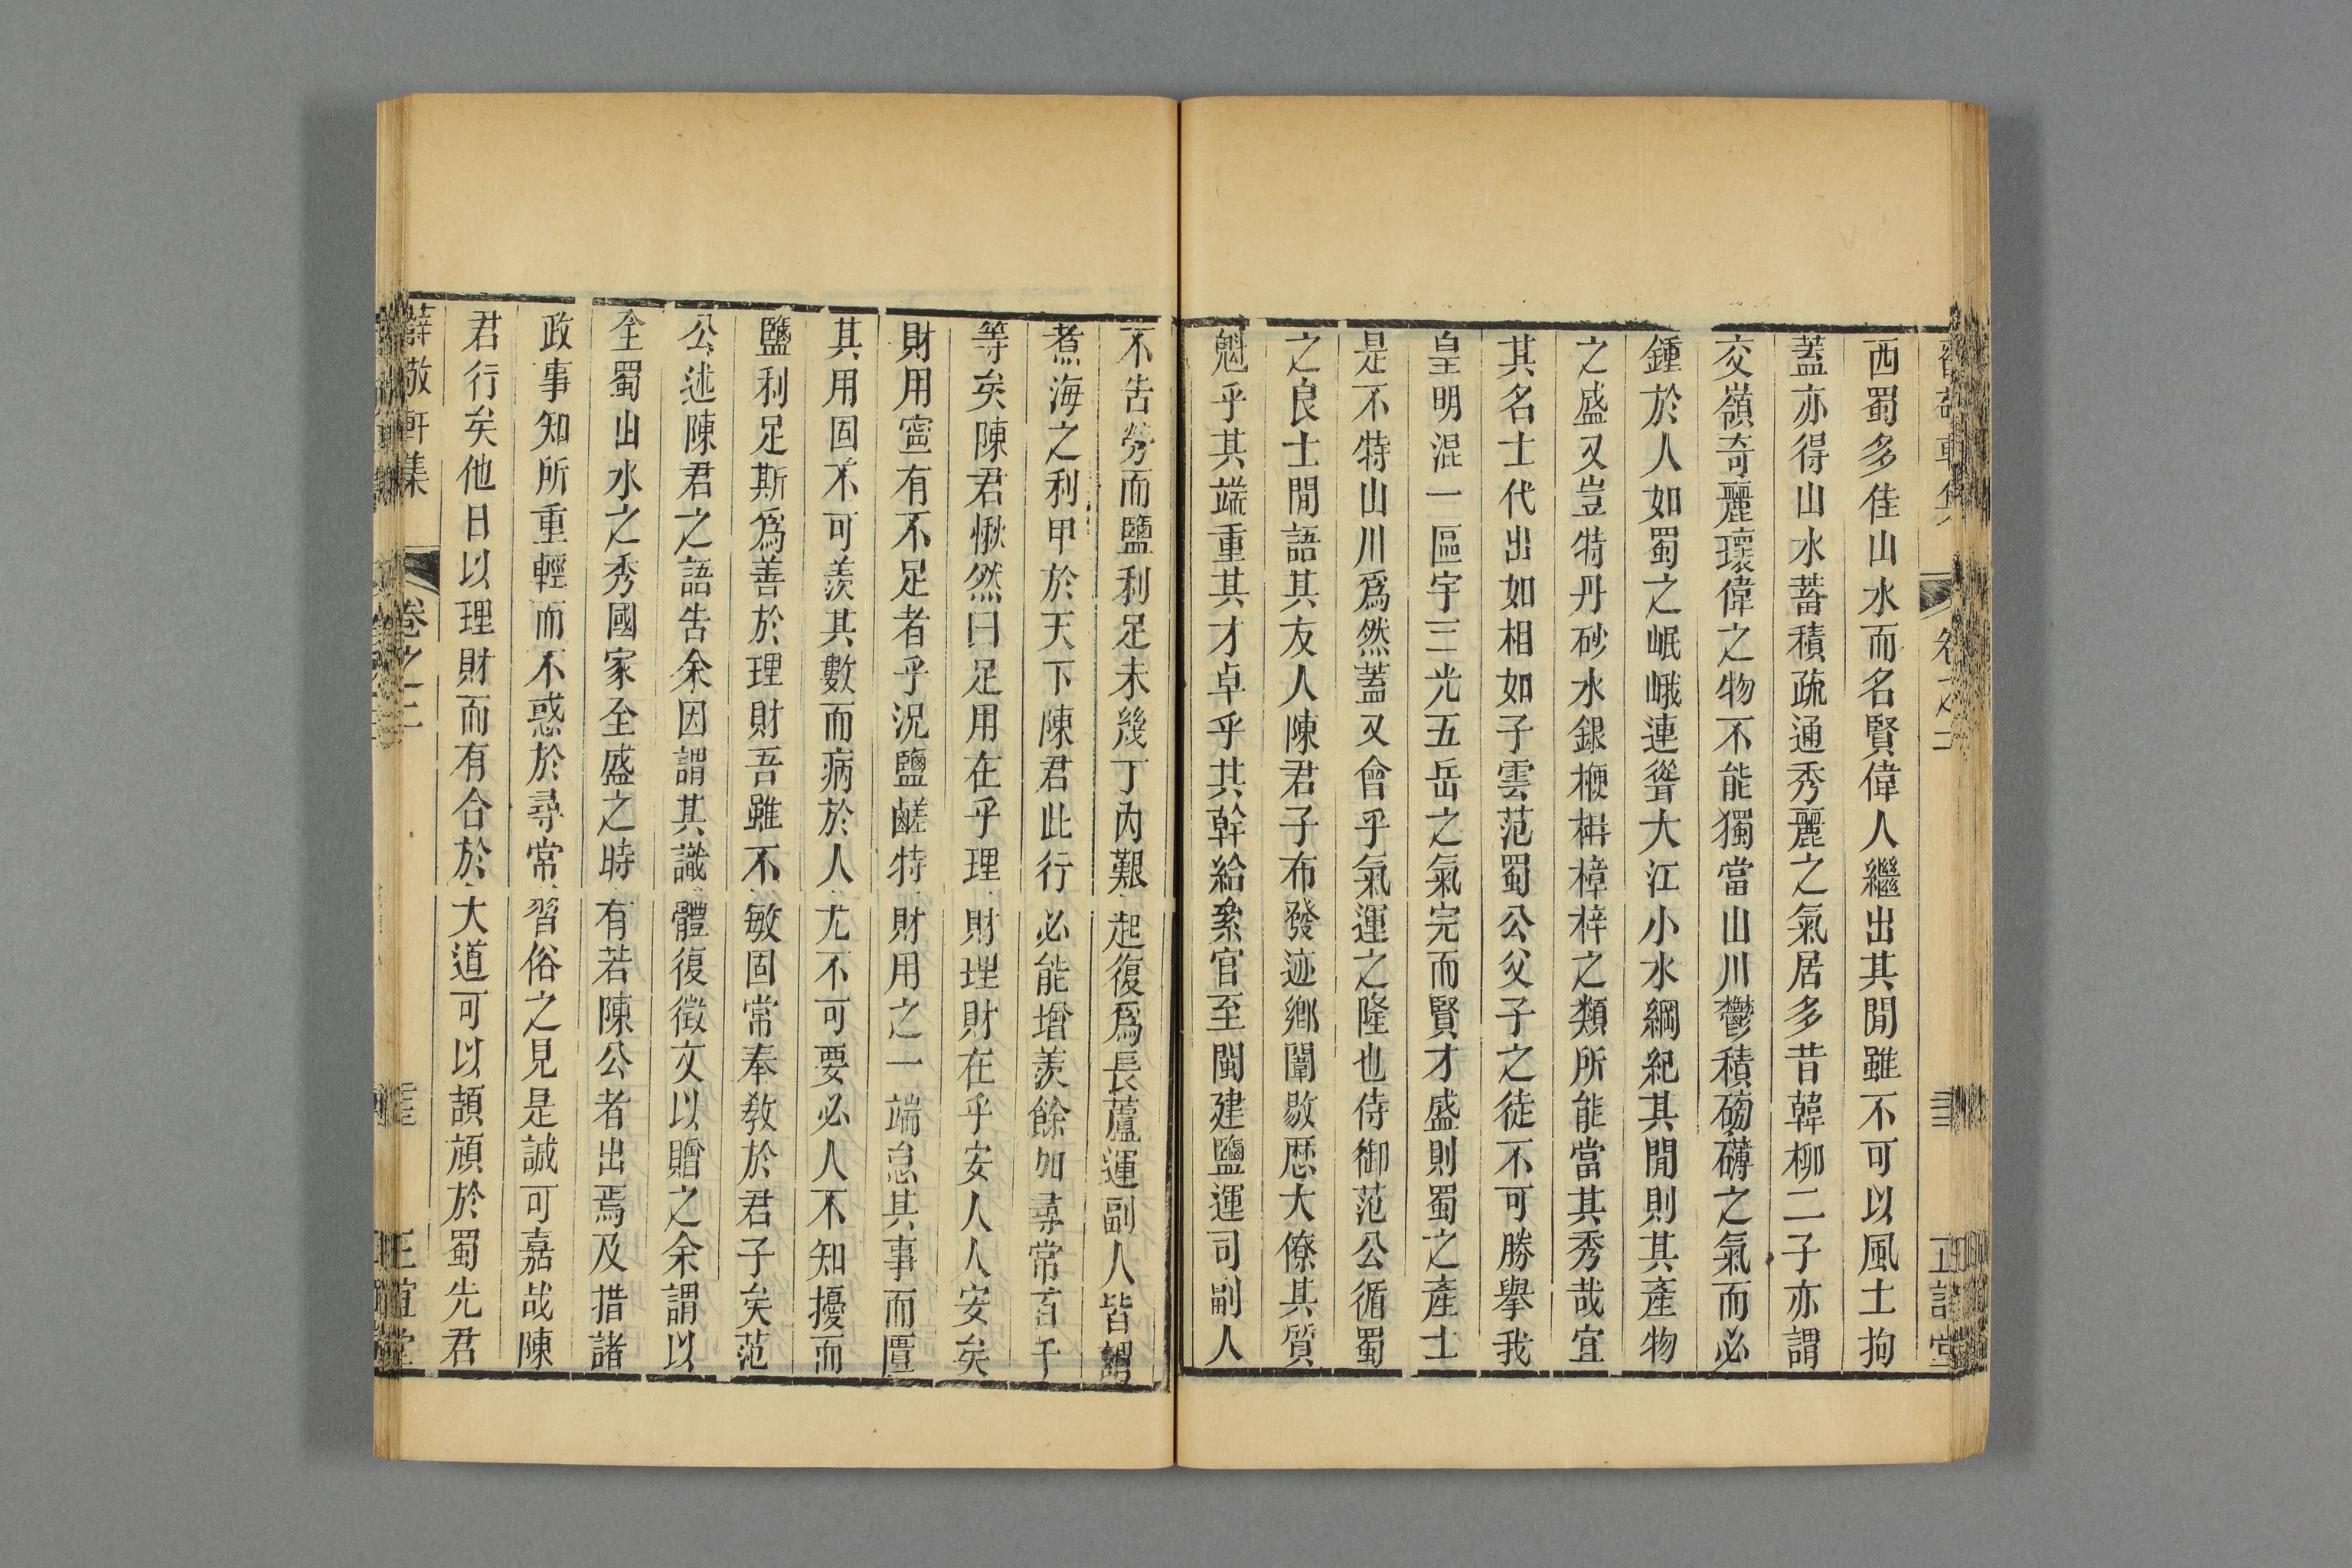 西蜀多佳山水而名賢偉人繼出其閒雖不可以風土拘
蓋亦得山水蓄積疏通秀麗之氣居多昔韓柳二子亦謂
交嶺奇麗瓌偉之物不能獨當山川鬱積磅礴之氣而必
鍾於人如蜀之岷峨連聳大江小水綱紀其閒則其產物
之盛又豈特丹砂水銀楩枏樟梓之類所能當其秀哉宜
其名士代出如相如子雲范蜀公父子之徒不可勝舉我
皇明混一區宇三光五岳之氣完而賢才盛則蜀之產士
是不特山川爲然蓋又會乎氣運之隆也侍御范公循蜀
之良士閒語其友人陳君子布發迹鄉闈敭厯大僚其質
魁乎其端重其才卓乎其幹給絫官至閩建鹽運司副人
不告勞而鹽利足未幾丁內艱起復爲長蘆運副人皆謂
煮海之利甲於天下陳君此行必能增羨餘加尋常百千
等矣陳君愀然曰足用在乎理財理財在乎安人人安矣
財用寧有不足者乎況鹽鹺特財用之一端怠其事而匱
其用固不可羨其數而病於人尤不可要必人不知擾而
鹽利足斯爲善於理財吾雖不敏固常奉敎於君子矣范
公述陳君之語告余因謂其識體復徵文以贈之余謂以
全蜀山水之秀國家至盛之時有若陳公者出焉及措諸
政事知所重輕而不惑於尋常習俗之見是誠可嘉哉陳
君行矣他日以理財而有合於大道可以頡頏於蜀先君
薛敬軒集
卷之二
正誼堂